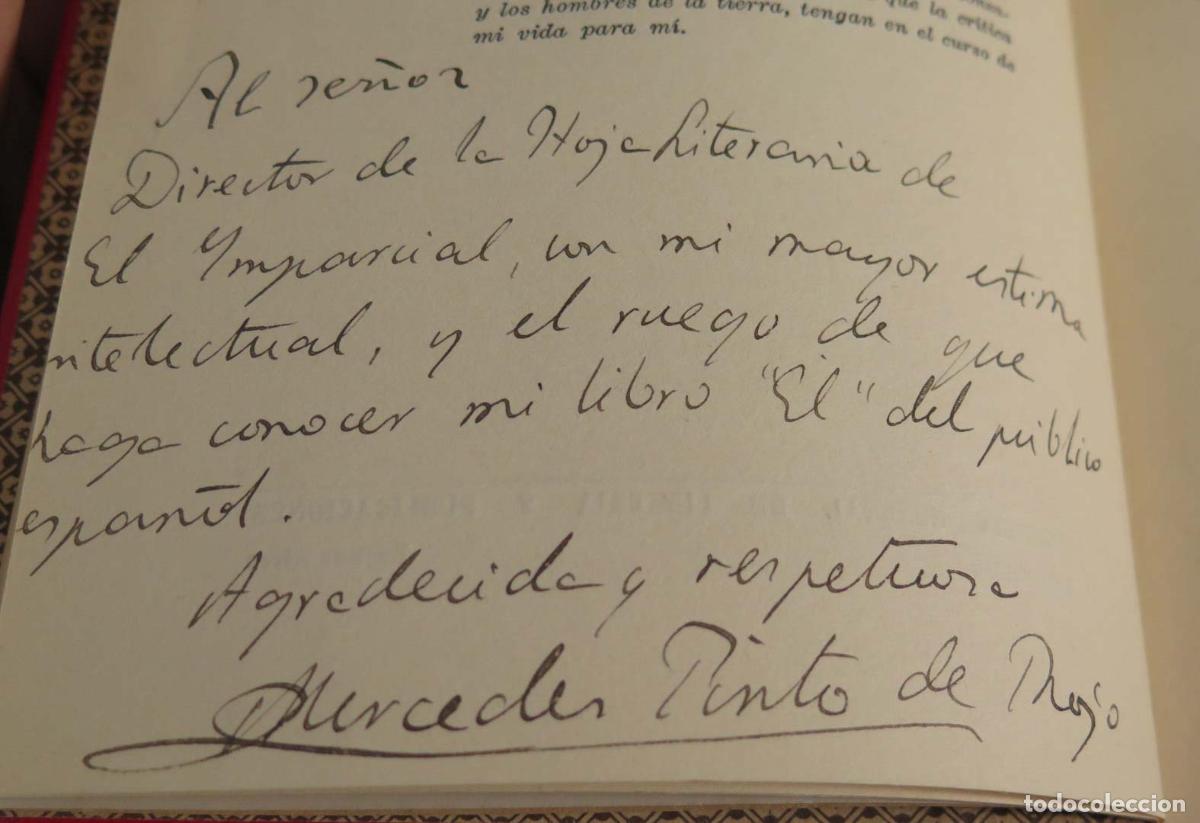 que la crítica
y los hombres de la tierra, tengan en el curso de
mi vida para mí.
Al señor
Director de la Hoja Literaria de
El Imparcial, con mi mayor estima
intelectual, y el ruego de que
haga conocer mi libro "Él" del público
español.
Agradecida y respetuosa
Mercedes Pinto de Rojo
todocoleccion